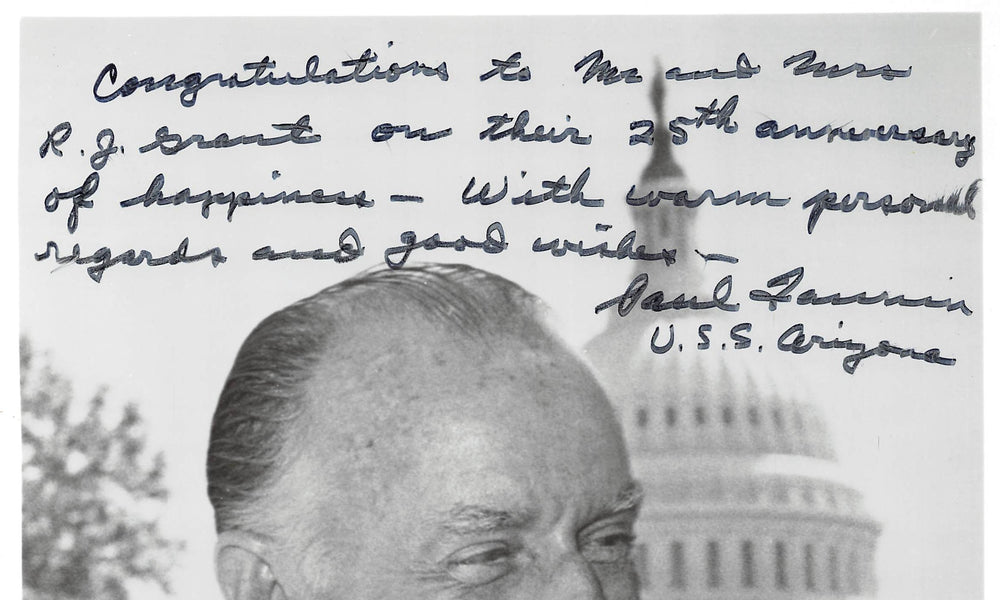 Congratulations to Mr and Mrs
R. J. Grant on their 25th anniversary
of happiness – With warm personal
regards and good wishes –
Paul Fannin
U.S.S. Arizona